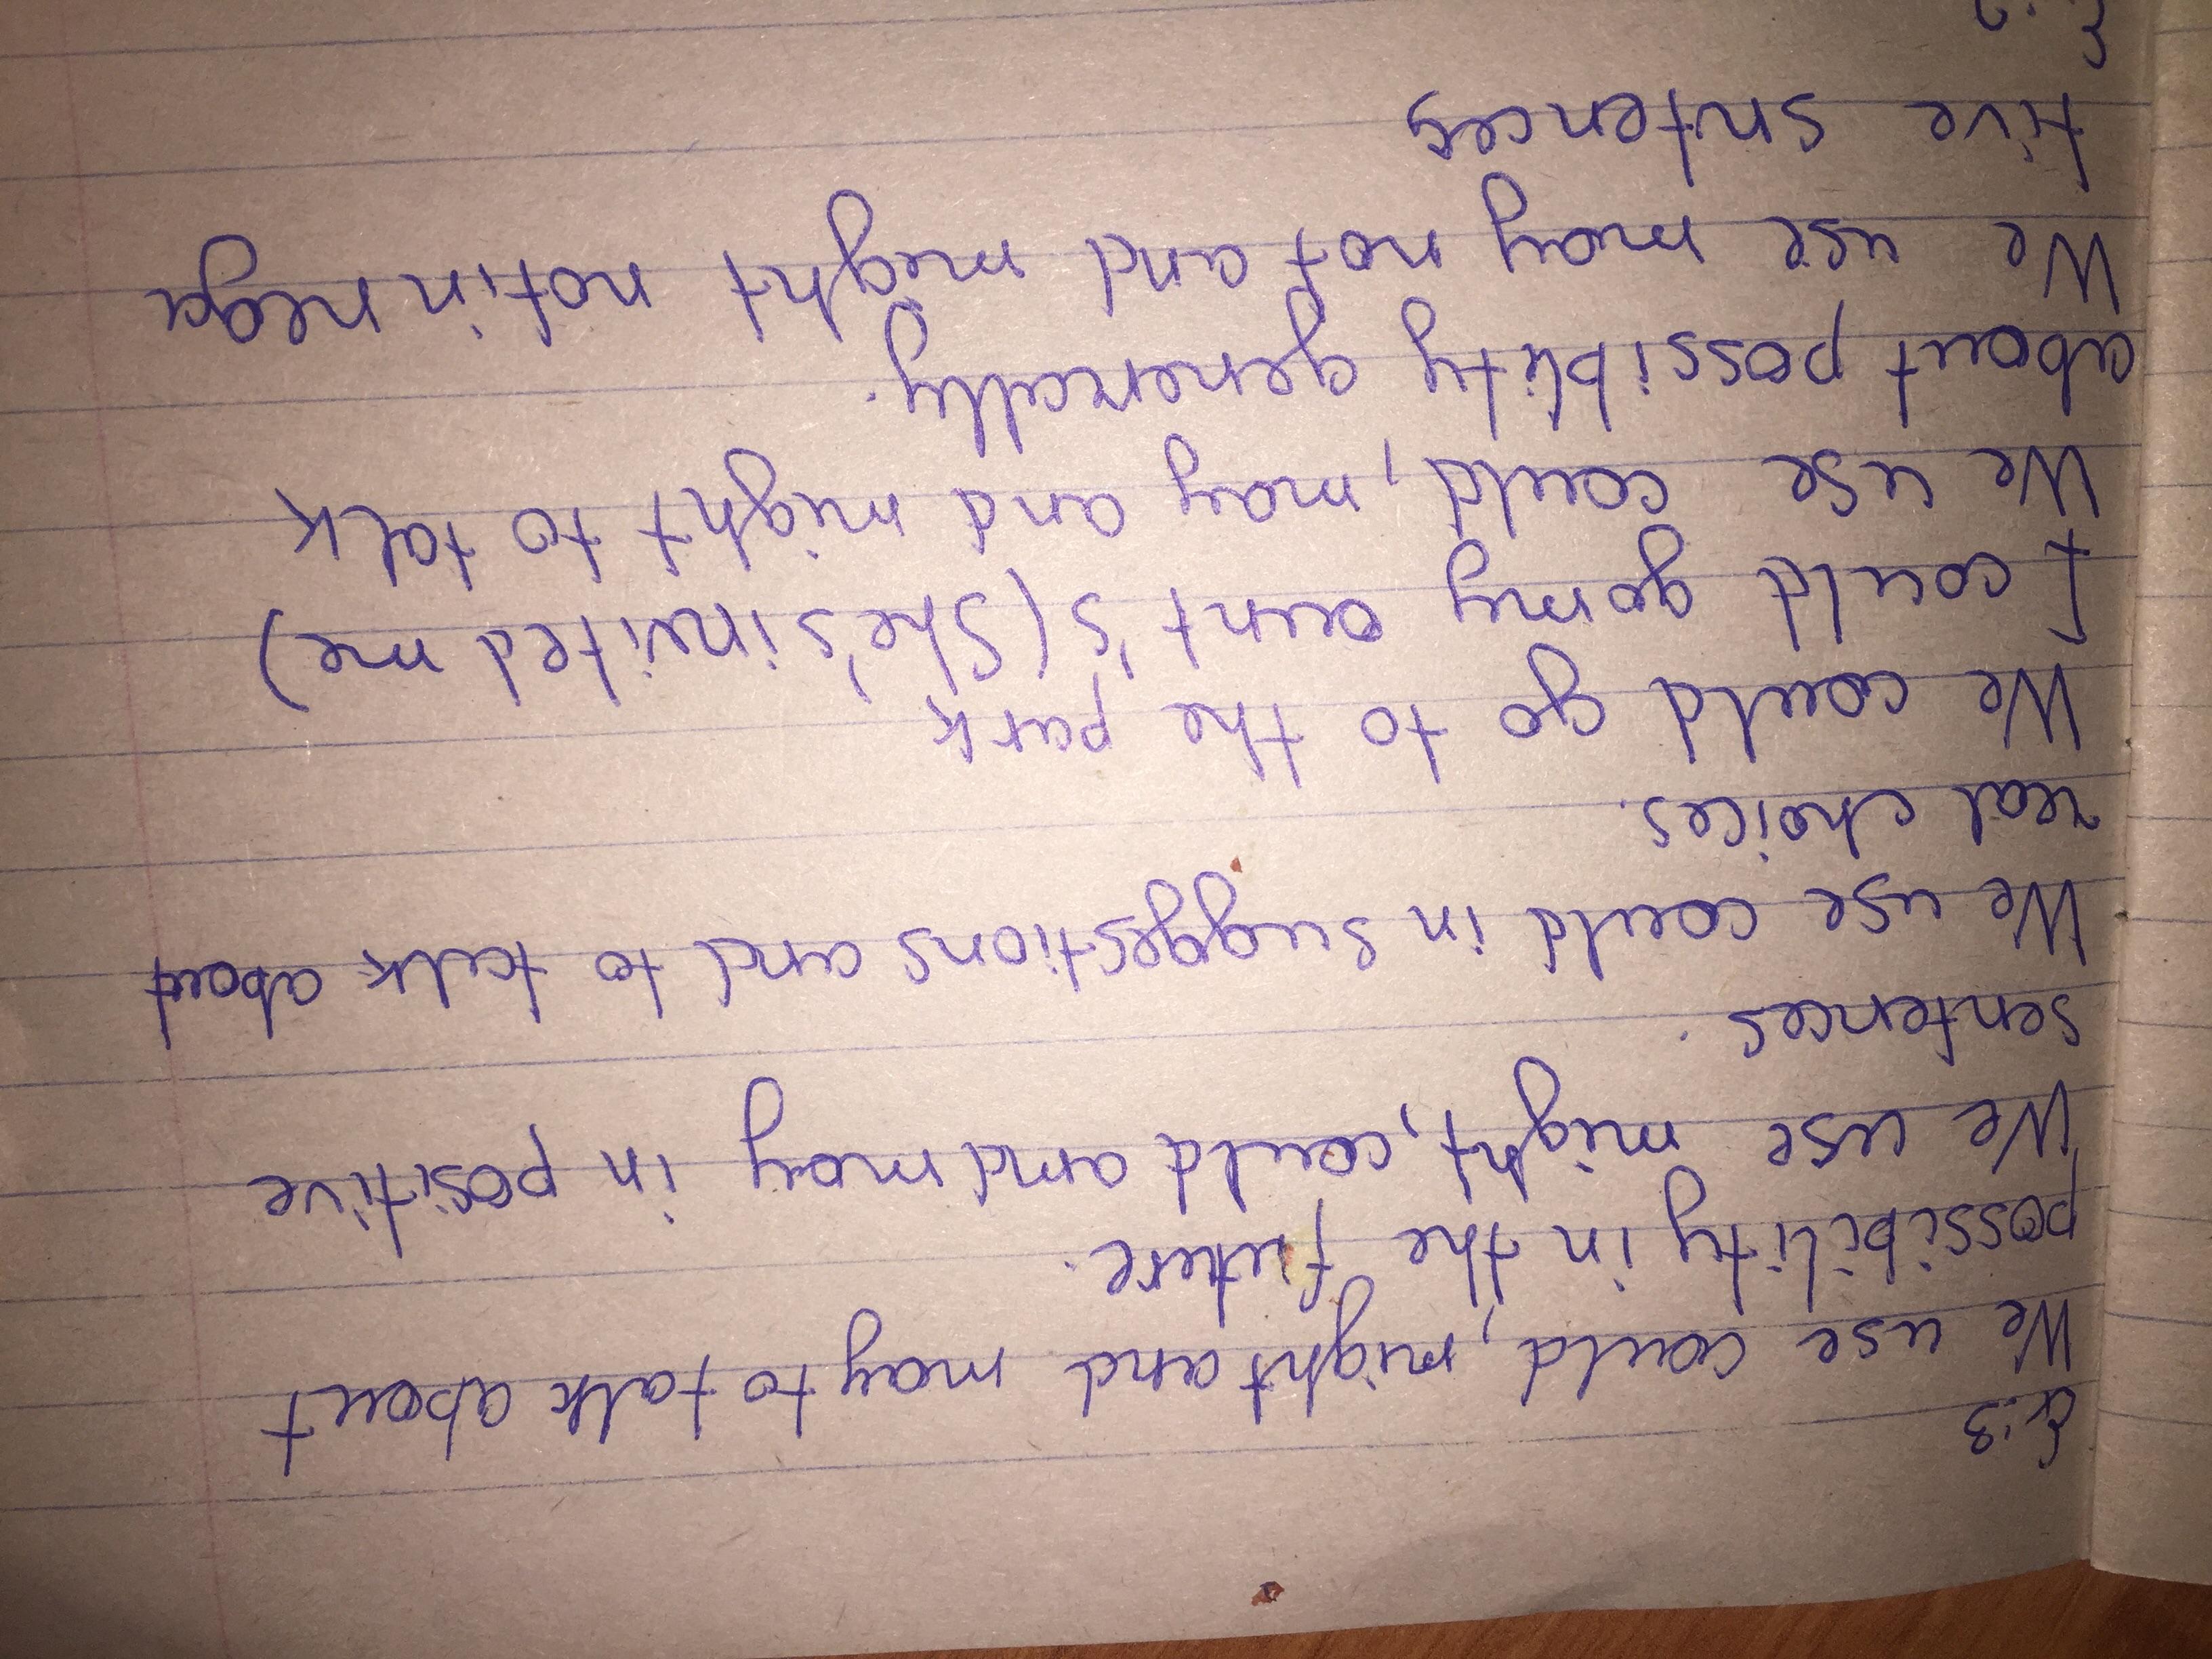 Ex:3
We use could, might and may to talk about
possibility in the future.
We use might, could and may in positive
sentences.
We use could in suggestions and to talk about
real choices.
We could go to the park
I could gomy aunt's (She's invited me)
We use could, may and might to talk
about possibity generally.
We use may not and might not in nega
tive sntences